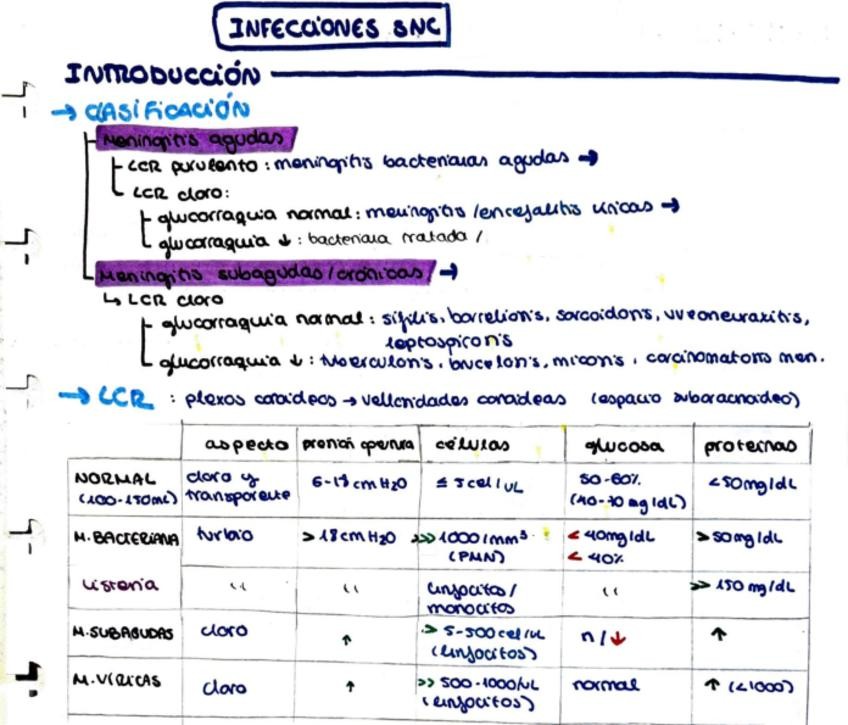 INFECCIONES SNC
INTRODUCCIÓN
→ CLASIFICACIÓN
Meningitis agudas
LCR purulento: meningitis bacterianas agudas →
LCR claro:
glucorraquia normal: meningitis/encefalitis víricas →
glucorraquia ↓: bacteriana tratada /
Meningitis subagudas/crónicas →
↳ LCR claro
glucorraquia normal: sífilis, borreliosis, sarcoidosis, uveoneuraxitis,
leptospirosis
glucorraquia ↓: tuberculosis, brucelosis, micosis, carcinomatosis men.
→ LCR: plexos coroideos → vellosidades coroideas (espacio subaracnoideo)
aspecto presión apertura células glucosa proteínas
NORMAL (100-150mL) claro y transparente 6-18 cmH2O ≤ 5 cel/uL 50-60% (40-70 mg/dL) <50mg/dL
M. BACTERIANA turbio >18cmH2O >>>1000/mm³ (PMN) <40mg/dL <40% >50mg/dL
Listeria " " linfocitos/monocitos " >> 150 mg/dL
M. SUBAGUDAS claro ↑ > 5-500 cel/uL (linfocitos) n/↓ ↑
M. VÍRICAS claro ↑ >> 500-1000/uL (linfocitos) normal ↑ (<1000)